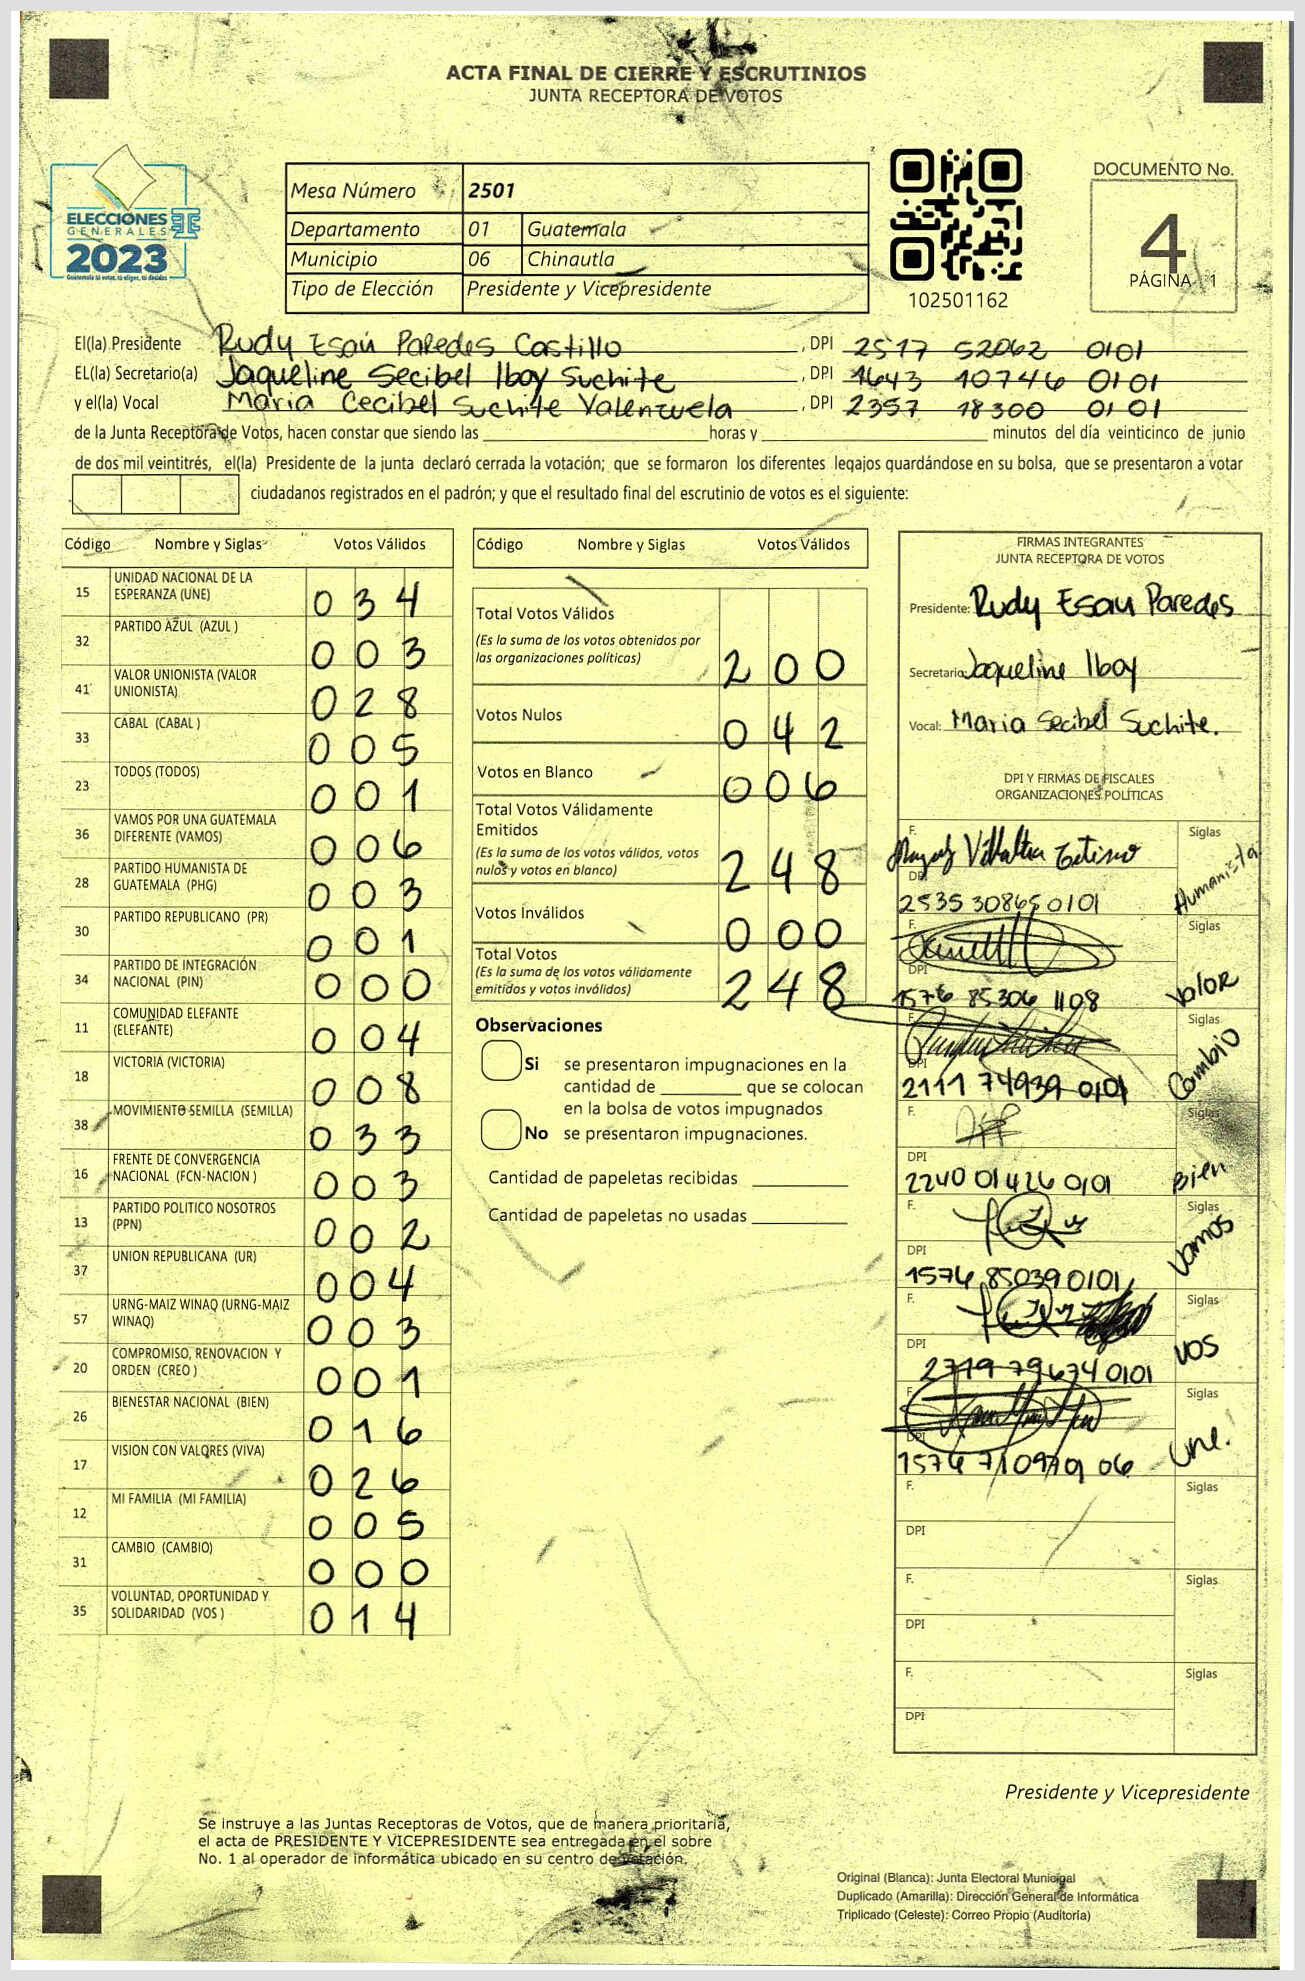 ACTA FINAL DE CIERRE Y ESCRUTINIOS
JUNTA RECEPTORA DE VOTOS
ELECCIONES
GENERALES
2023
Guatemala tú votas, tú eliges, tú decides
Mesa Número 2501
Departamento 01 Guatemala
Municipio 06 Chinautla
Tipo de Elección Presidente y Vicepresidente
102501162
DOCUMENTO No.
4
PÁGINA 1
El(la) Presidente Rudy Esaú Paredes Castillo , DPI 2517 52062 0101
EL(la) Secretario(a) Jaqueline Secibel Iboy Suchite , DPI 1643 10746 0101
y el(la) Vocal Maria Cecibel Suchite Valenzuela , DPI 2357 18300 0101
de la Junta Receptora de Votos, hacen constar que siendo las horas y minutos del día veinticinco de junio
de dos mil veintitrés, el(la) Presidente de la junta declaró cerrada la votación; que se formaron los diferentes legajos guardándose en su bolsa, que se presentaron a votar
ciudadanos registrados en el padrón; y que el resultado final del escrutinio de votos es el siguiente:
Código Nombre y Siglas Votos Válidos
15 UNIDAD NACIONAL DE LA ESPERANZA (UNE) 0 3 4
32 PARTIDO AZUL (AZUL ) 0 0 3
41 VALOR UNIONISTA (VALOR UNIONISTA) 0 2 8
33 CABAL (CABAL ) 0 0 5
23 TODOS (TODOS) 0 0 1
36 VAMOS POR UNA GUATEMALA DIFERENTE (VAMOS) 0 0 6
28 PARTIDO HUMANISTA DE GUATEMALA (PHG) 0 0 3
30 PARTIDO REPUBLICANO (PR) 0 0 1
34 PARTIDO DE INTEGRACIÓN NACIONAL (PIN) 0 0 0
11 COMUNIDAD ELEFANTE (ELEFANTE) 0 0 4
18 VICTORIA (VICTORIA) 0 0 8
38 MOVIMIENTO SEMILLA (SEMILLA) 0 3 3
16 FRENTE DE CONVERGENCIA NACIONAL (FCN-NACION ) 0 0 3
13 PARTIDO POLITICO NOSOTROS (PPN) 0 0 2
37 UNION REPUBLICANA (UR) 0 0 4
57 URNG-MAIZ WINAQ (URNG-MAIZ WINAQ) 0 0 3
20 COMPROMISO, RENOVACION Y ORDEN (CREO ) 0 0 1
26 BIENESTAR NACIONAL (BIEN) 0 1 6
17 VISION CON VALORES (VIVA) 0 2 6
12 MI FAMILIA (MI FAMILIA) 0 0 5
31 CAMBIO (CAMBIO) 0 0 0
35 VOLUNTAD, OPORTUNIDAD Y SOLIDARIDAD (VOS ) 0 1 4
Código Nombre y Siglas Votos Válidos
Total Votos Válidos
(Es la suma de los votos obtenidos por
las organizaciones políticas) 2 0 0
Votos Nulos 0 4 2
Votos en Blanco 0 0 6
Total Votos Válidamente
Emitidos
(Es la suma de los votos válidos, votos
nulos y votos en blanco) 2 4 8
Votos Inválidos 0 0 0
Total Votos
(Es la suma de los votos válidamente
emitidos y votos inválidos) 2 4 8
Observaciones
Si se presentaron impugnaciones en la
cantidad de que se colocan
en la bolsa de votos impugnados
No se presentaron impugnaciones.
Cantidad de papeletas recibidas
Cantidad de papeletas no usadas
FIRMAS INTEGRANTES
JUNTA RECEPTORA DE VOTOS
Presidente: Rudy Esau Paredes
Secretario: Jaqueline Iboy
Vocal: Maria Secibel Suchite.
DPI Y FIRMAS DE FISCALES
ORGANIZACIONES POLÍTICAS
F. Siglas
DPI 2535 30865 0101 Humanista
F. Siglas
DPI 1576 85306 1108 Valor
F. Siglas
DPI 2111 74939 0101 Cambio
F. Siglas
DPI 2240 01426 0101 Bien
F. Siglas
DPI 1574 85039 0101 Vamos
F. Siglas
DPI 2719 79674 0101 VOS
F. Siglas
DPI 1574 71097 01 06 Une.
F. Siglas
DPI
F. Siglas
DPI
F. Siglas
DPI
Presidente y Vicepresidente
Se instruye a las Juntas Receptoras de Votos, que de manera prioritaria,
el acta de PRESIDENTE Y VICEPRESIDENTE sea entregada en el sobre
No. 1 al operador de informática ubicado en su centro de votación.
Original (Blanca): Junta Electoral Municipal
Duplicado (Amarilla): Dirección General de Informática
Triplicado (Celeste): Correo Propio (Auditoría)